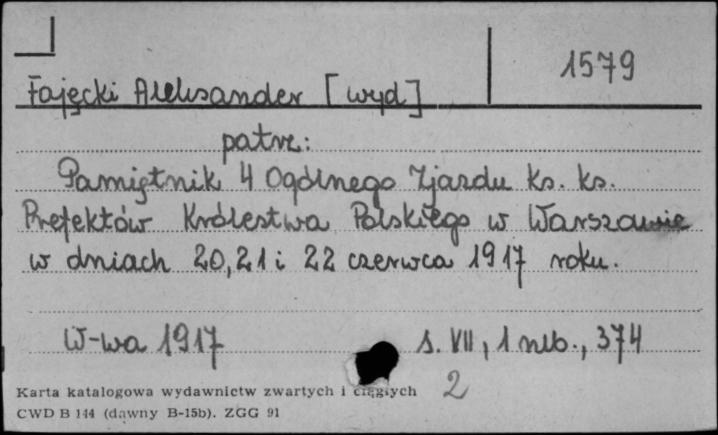 1579
Fajęcki Aleksander [wyd]
patrz:
Pamiętnik 4 Ogólnego Zjazdu ks. ks.
Prefektów Królestwa Polskiego w Warszawie
w dniach 20, 21 i 22 czerwca 1917 roku.
W-wa 1917 s. VII, 1 nlb., 374
2
Karta katalogowa wydawnictw zwartych i ciągłych
CWD B 144 (dawny B-15b). ZGG 91